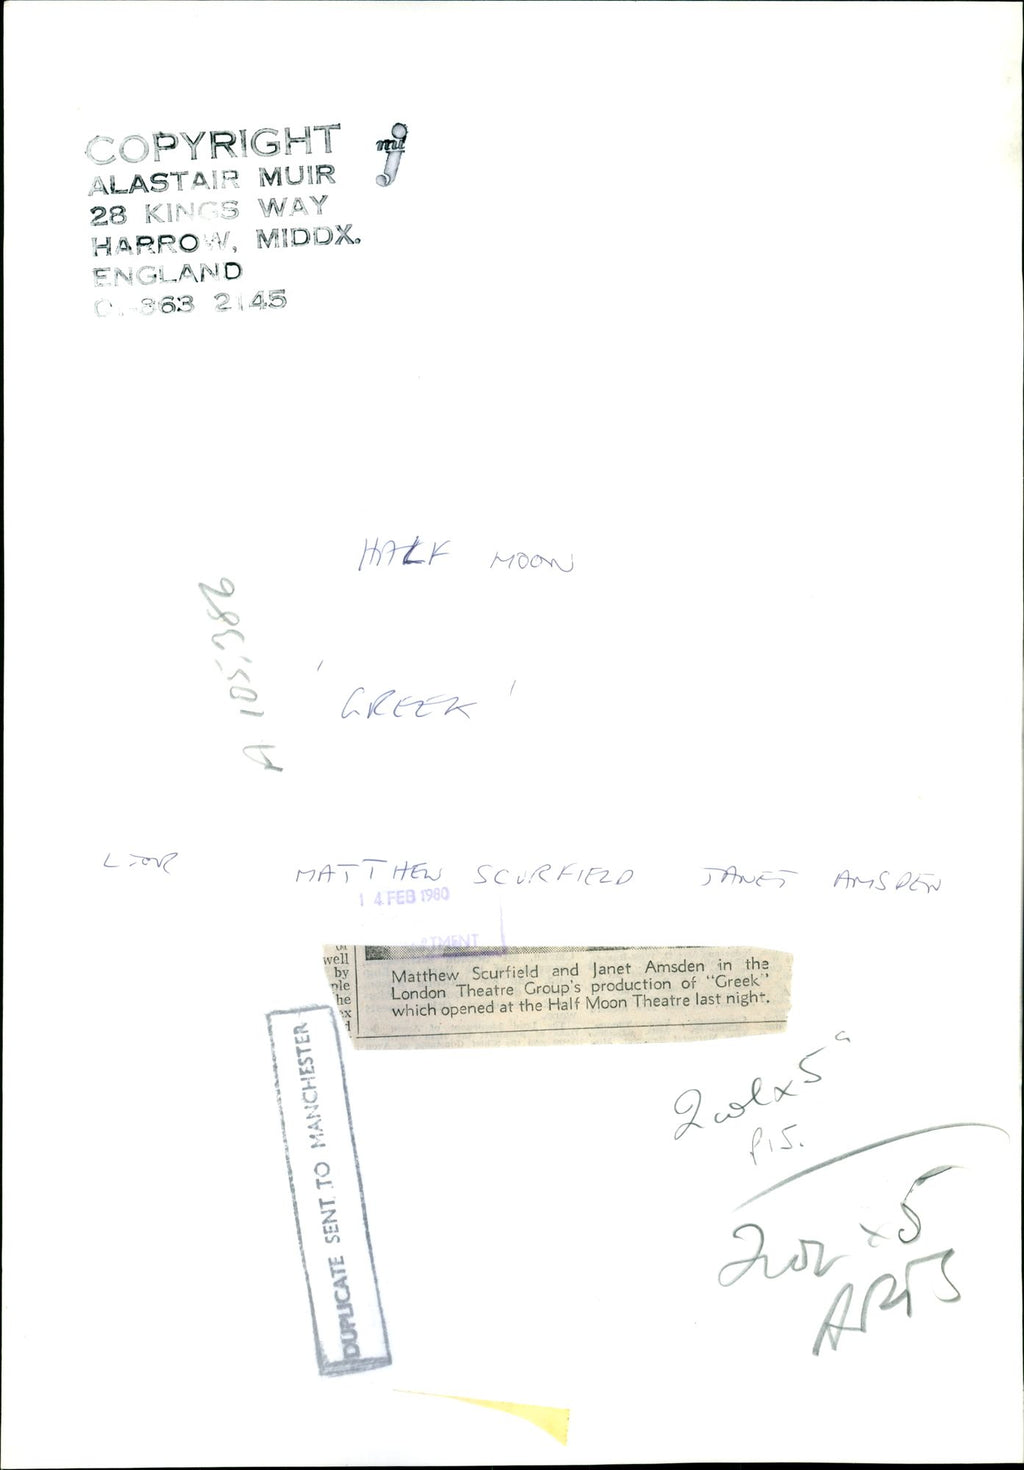 COPYRIGHT
ALASTAIR MUIR
28 KINGS WAY
HARROW, MIDDX.
ENGLAND
01-863 2145
HALF MOON
A 105,386
'GREEK'
L TO R MATTHEW SCURFIELD JANET AMSDEN
14 FEB 1980
well
by
he
Matthew Scurfield and Janet Amsden in the
London Theatre Group's production of "Greek"
which opened at the Half Moon Theatre last night.
DUPLICATE SENT TO MANCHESTER
2 col x 5"
P15.
2 col x 5
ARTS